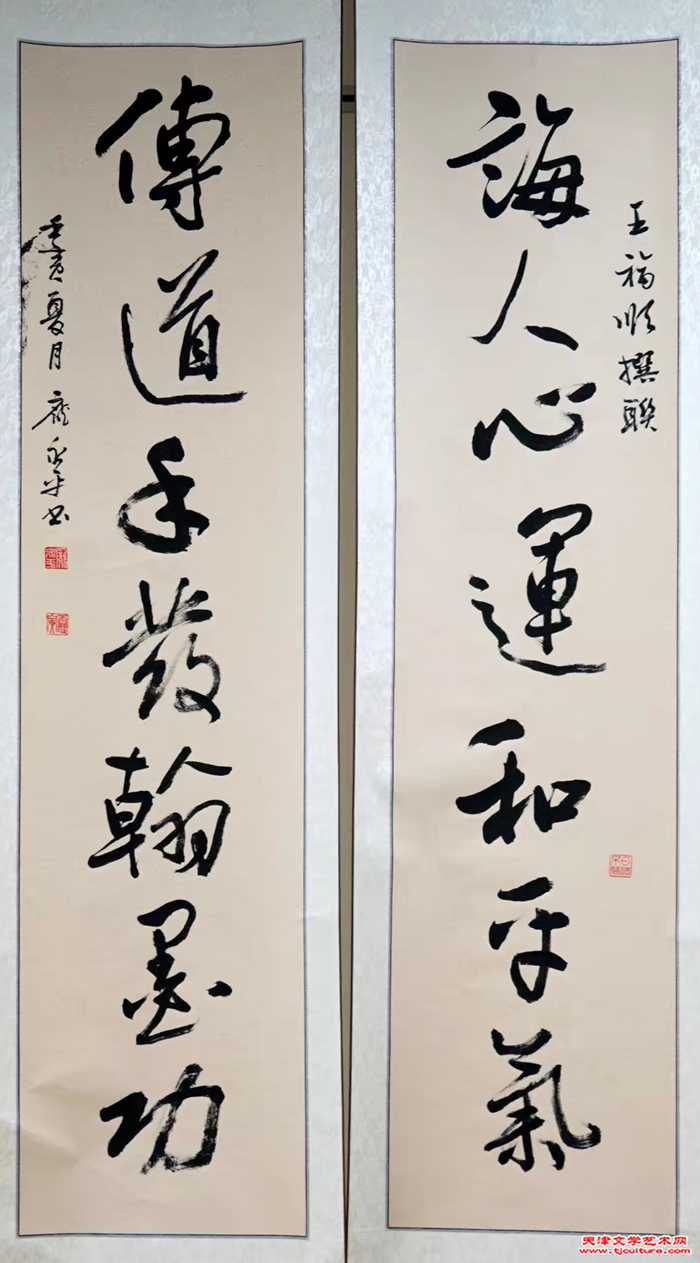 王福顺撰聯
誨人心運和平氣
傳道手發翰墨功
壬寅夏月 龐永平书
天津文学艺术网
www.tjculture.com